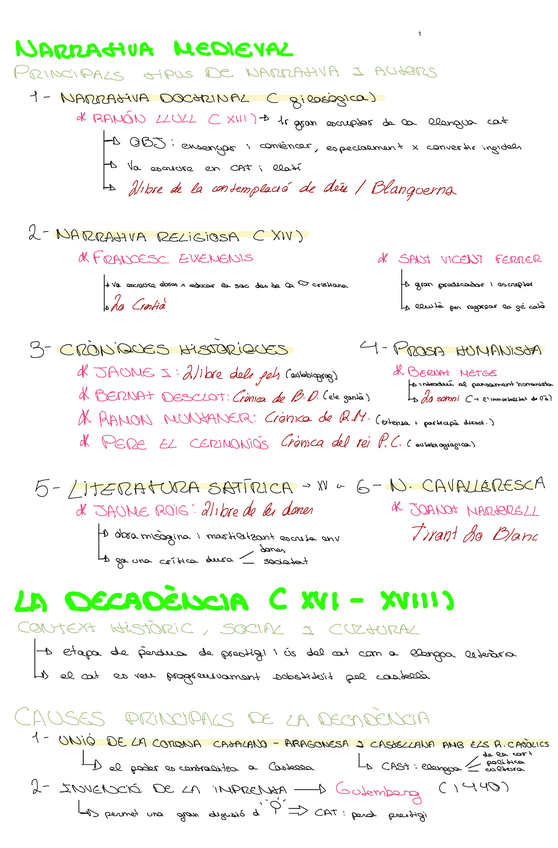 1
NARRATIVA MEDIEVAL
PRINCIPALS TIPUS DE NARRATIVA I AUTORS
1- NARRATIVA DOCTRINAL ( filosògica)
* RAMÓN LLULL ( XIII) → 1r gran escriptor de la llengua cat
→ OBJ: ensenyar i convèncer, especialment x convertir infidels
→ Va escriure en CAT i llatí
→ Llibre de la contemplació de déu / Blanquerna
2- NARRATIVA RELIGIOSA ( XIV)
* FRANCESC EIXIMENIS
→ Va escriure
cristiana
→ Lo Crestià
* SANT VICENT FERRER
→ gran predicador i escriptor
→ lluità per
3- CRÒNIQUES HISTÒRIQUES
* JAUME I: Llibre dels fets (autobiogràf)
* BERNAT DESCLOT: Crònica de B.D.
* RAMON MUNTANER: Crònica de R.M. (extensa i participà direct.)
* PERE EL CERIMONIÓS Crònica del rei P.C. (autobiogràfica)
4- PROSA HUMANISTA
* BERNAT METGE
→ introduí el pensament humanista
→ Lo somni
5- LITERATURA SATÍRICA → XV ←
* JAUME ROIG: Llibre de les dones
→ obra misògina i moralitzant escrita en v
→ fa una crítica dura
dones
societat
6- N. CAVALLERESCA
* JOANOT MARTORELL
Tirant Lo Blanc
LA DECADÈNCIA ( XVI - XVIII)
CONTEXT HISTÒRIC, SOCIAL I CULTURAL
→ etapa de pèrdua de prestigi i ús del cat com a llengua literària
→ el cat es veu progressivament substituït pel castellà
CAUSES PRINCIPALS DE LA DECADÈNCIA
1- UNIÓ DE LA CORONA CATALANO - ARAGONESA I CASTELLANA AMB ELS R. CATÒLICS
→ el poder es centralitza a Castella
→ CAST: llengua
de la cort
política
cultura
2- INVENCIÓ DE LA IMPREMTA → Gutemberg (1440)
→ permet una gran difusió d' ⇒ CAT: perd prestigi